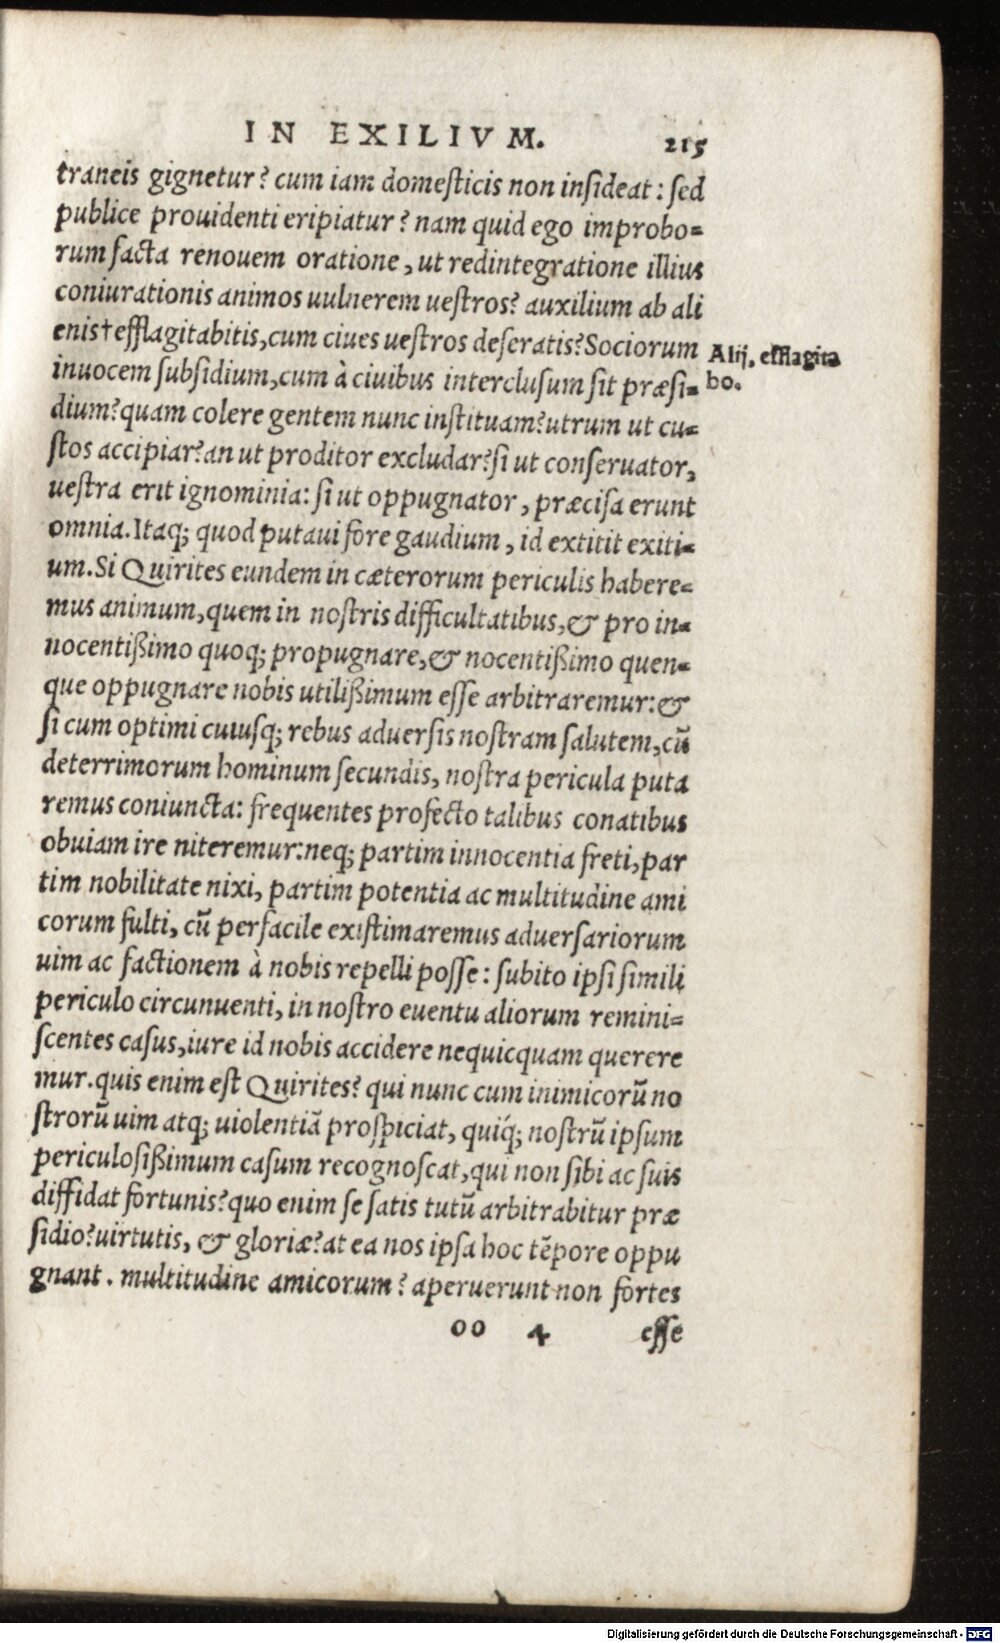 IN EXILIVM. 215
traneis gignetur? cum iam domesticis non insideat: sed
publice prouidenti eripiatur? nam quid ego improbo=
rum facta renouem oratione, ut redintegratione illius
coniurationis animos uulnerem uestros? auxilium ab ali
enis†efflagitabitis,cum ciues uestros deseratis?Sociorum
Alij. efflagita
bo.
inuocem subsidium,cum à ciuibus interclusum sit præsi=
dium?quam colere gentem nunc instituam?utrum ut cu=
stos accipiar?an ut proditor excludar?si ut conseruator,
uestra erit ignominia: si ut oppugnator, præcisa erunt
omnia.Itaq; quod putaui fore gaudium, id extitit exiti=
um.Si Quirites eundem in cæterorum periculis habere=
mus animum,quem in nostris difficultatibus,& pro in=
nocentißimo quoq; propugnare,& nocentißimo quen=
que oppugnare nobis utilißimum esse arbitraremur:&
si cum optimi cuiusq; rebus aduersis nostram salutem,cũ
deterrimorum hominum secundis, nostra pericula puta
remus coniuncta: frequentes profecto talibus conatibus
obuiam ire niteremur:neq; partim innocentia freti,par
tim nobilitate nixi, partim potentia ac multitudine ami
corum fulti, cũ perfacile existimaremus aduersariorum
uim ac factionem à nobis repelli posse: subito ipsi simili
periculo circunuenti, in nostro euentu aliorum remini=
scentes casus,iure id nobis accidere nequicquam querere
mur.quis enim est Quirites? qui nunc cum inimicorũ no
strorũ uim atq; uiolentiã prospiciat, quiq́; nostrũ ipsum
periculosißimum casum recognoscat,qui non sibi ac suis
diffidat fortunis?quo enim se satis tutũ arbitrabitur præ
sidio?uirtutis, & gloriæ?at ea nos ipsa hoc tẽpore oppu
gnant. multitudine amicorum? aperuerunt non fortes
oo 4 esse
Digitalisierung gefördert durch die Deutsche Forschungsgemeinschaft - DFG